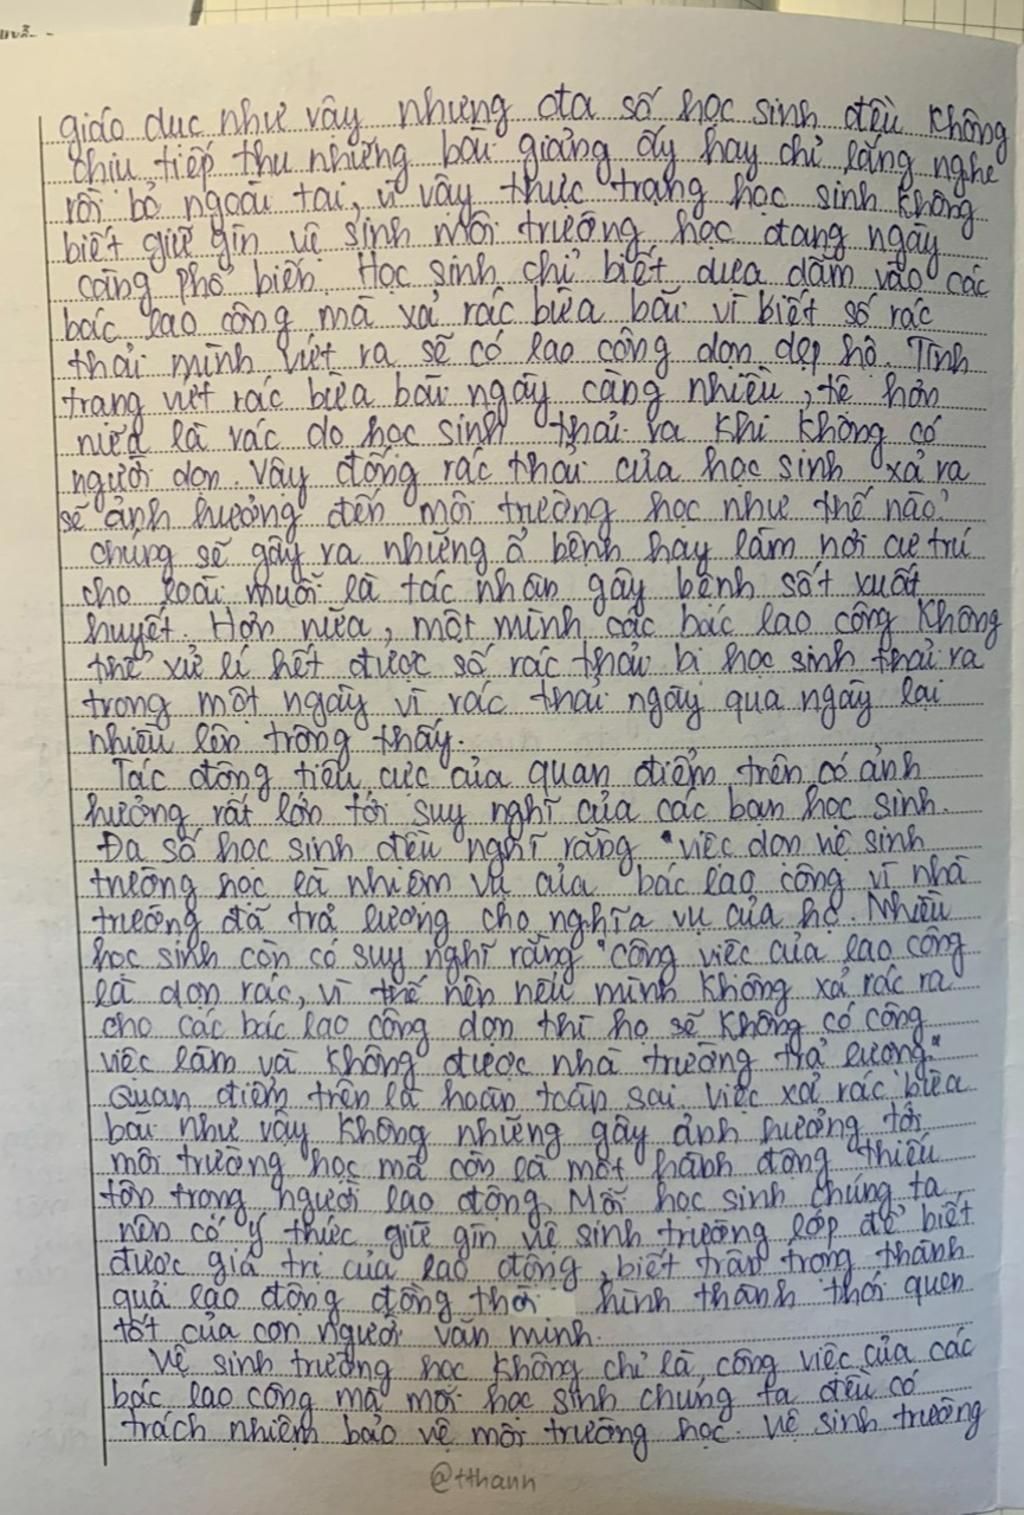 giáo dục như vậy nhưng đa số học sinh đều không
chịu tiếp thu những bài giảng ấy hay chỉ lắng nghe
rồi bỏ ngoài tai, vì vậy thực trạng học sinh không
biết giữ gìn vệ sinh môi trường học đang ngày
càng phổ biến. Học sinh chỉ biết dựa dẫm vào các
bác lao công mà xả rác bừa bãi vì biết số rác
thải mình vứt ra sẽ có lao công dọn dẹp hộ. Tình
trạng vứt rác bừa bãi ngày càng nhiều, tệ hơn
nữa là rác do học sinh thải ra khi không có
người dọn. Vậy đống rác thải của học sinh xả ra
sẽ ảnh hưởng đến môi trường học như thế nào?
chúng sẽ gây ra những ổ bệnh hay làm nơi cư trú
cho loài muỗi là tác nhân gây bệnh sốt xuất
huyết. Hơn nữa, một mình các bác lao công không
thể xử lí hết được số rác thải bị học sinh thải ra
trong một ngày vì rác thải ngày qua ngày lại
nhiều lên trông thấy.
Tác động tiêu cực của quan điểm trên có ảnh
hưởng rất lớn tới suy nghĩ của các bạn học sinh.
Đa số học sinh đều nghĩ rằng "việc dọn vệ sinh
trường học là nhiệm vụ của bác lao công vì nhà
trường đã trả lương cho nghĩa vụ của họ. Nhiều
học sinh còn có suy nghĩ rằng "công việc của lao công
là dọn rác, vì thế nên nếu mình không xả rác ra
cho các bác lao công dọn thì họ sẽ không có công
việc làm và không được nhà trường trả lương."
Quan điểm trên là hoàn toàn sai. Việc xả rác bừa
bãi như vậy không những gây ảnh hưởng tới
môi trường học mà còn là một hành động thiếu
tôn trọng người lao động. Mỗi học sinh chúng ta
nên có ý thức giữ gìn vệ sinh trường lớp để biết
được giá trị của lao động, biết trân trọng thành
quả lao động đồng thời hình thành thói quen
tốt của con người văn minh.
Vệ sinh trường học không chỉ là công việc của các
bác lao công mà mỗi học sinh chúng ta đều có
trách nhiệm bảo vệ môi trường học. Vệ sinh trường
@tthann